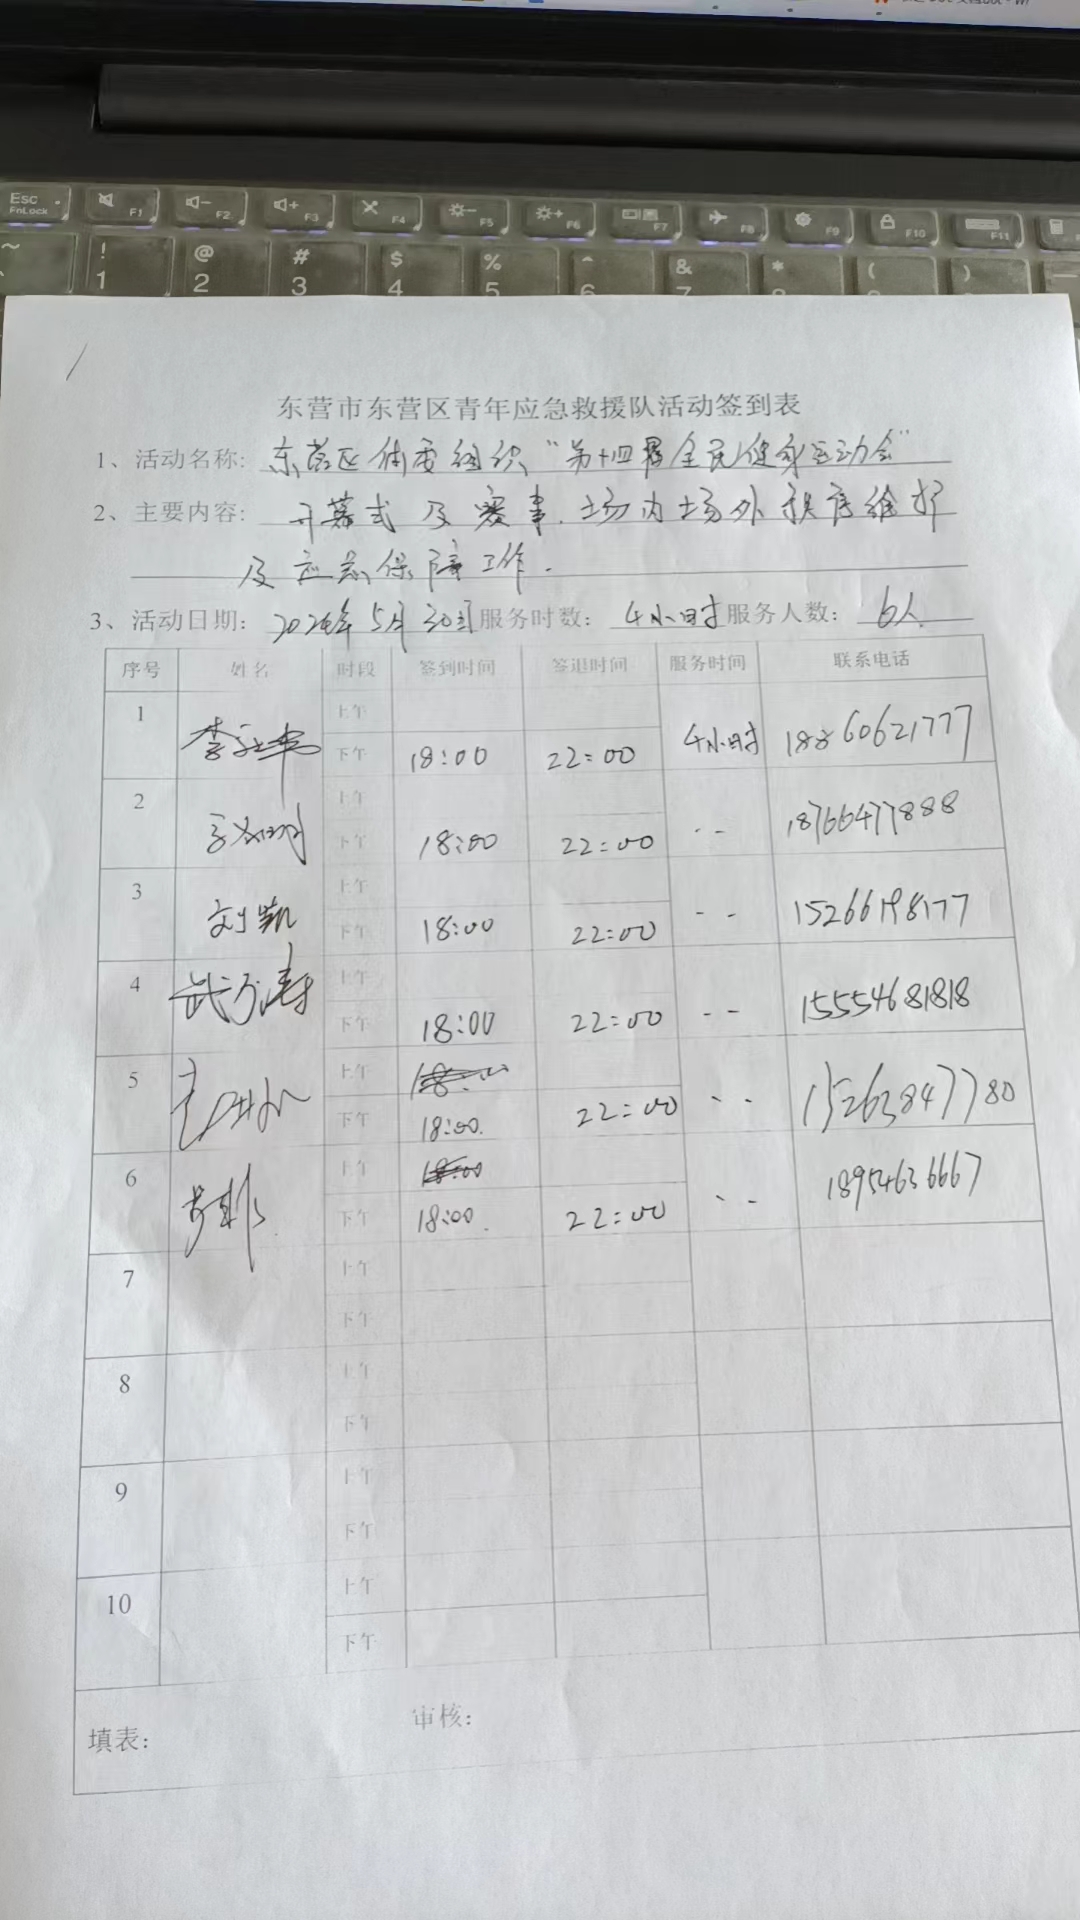 Esc
FnLock
F1
F2
F3
F4
F5
F6
F7
F8
F9
F10
F11
~ ! @ # $ % ^ & * ( )
1 2 3 4 5 6 7
东营市东营区青年应急救援队活动签到表
1、活动名称: 东营区体委组织“第十四届全民健身运动会”
2、主要内容: 开幕式及赛事.场内场外秩序维护
及应急保障工作.
3、活动日期: 2024年5月30日 服务时数: 4小时 服务人数: 6人
序号 姓名 时段 签到时间 签退时间 服务时间 联系电话
1 上午
下午 18:00 22:00 4小时 18860621777
2 上午
下午 18:00 22:00 -- 18766477888
3 刘凯 上午
下午 18:00 22:00 -- 15266198177
4 上午
下午 18:00 22:00 -- 15554681818
5 上午
下午 18:00. 22:00 -- 15263847780
6 上午 18:00
下午 18:00. 22:00 -- 18954636667
7 上午
下午
8 上午
下午
9 上午
下午
10 上午
下午
填表: 审核: